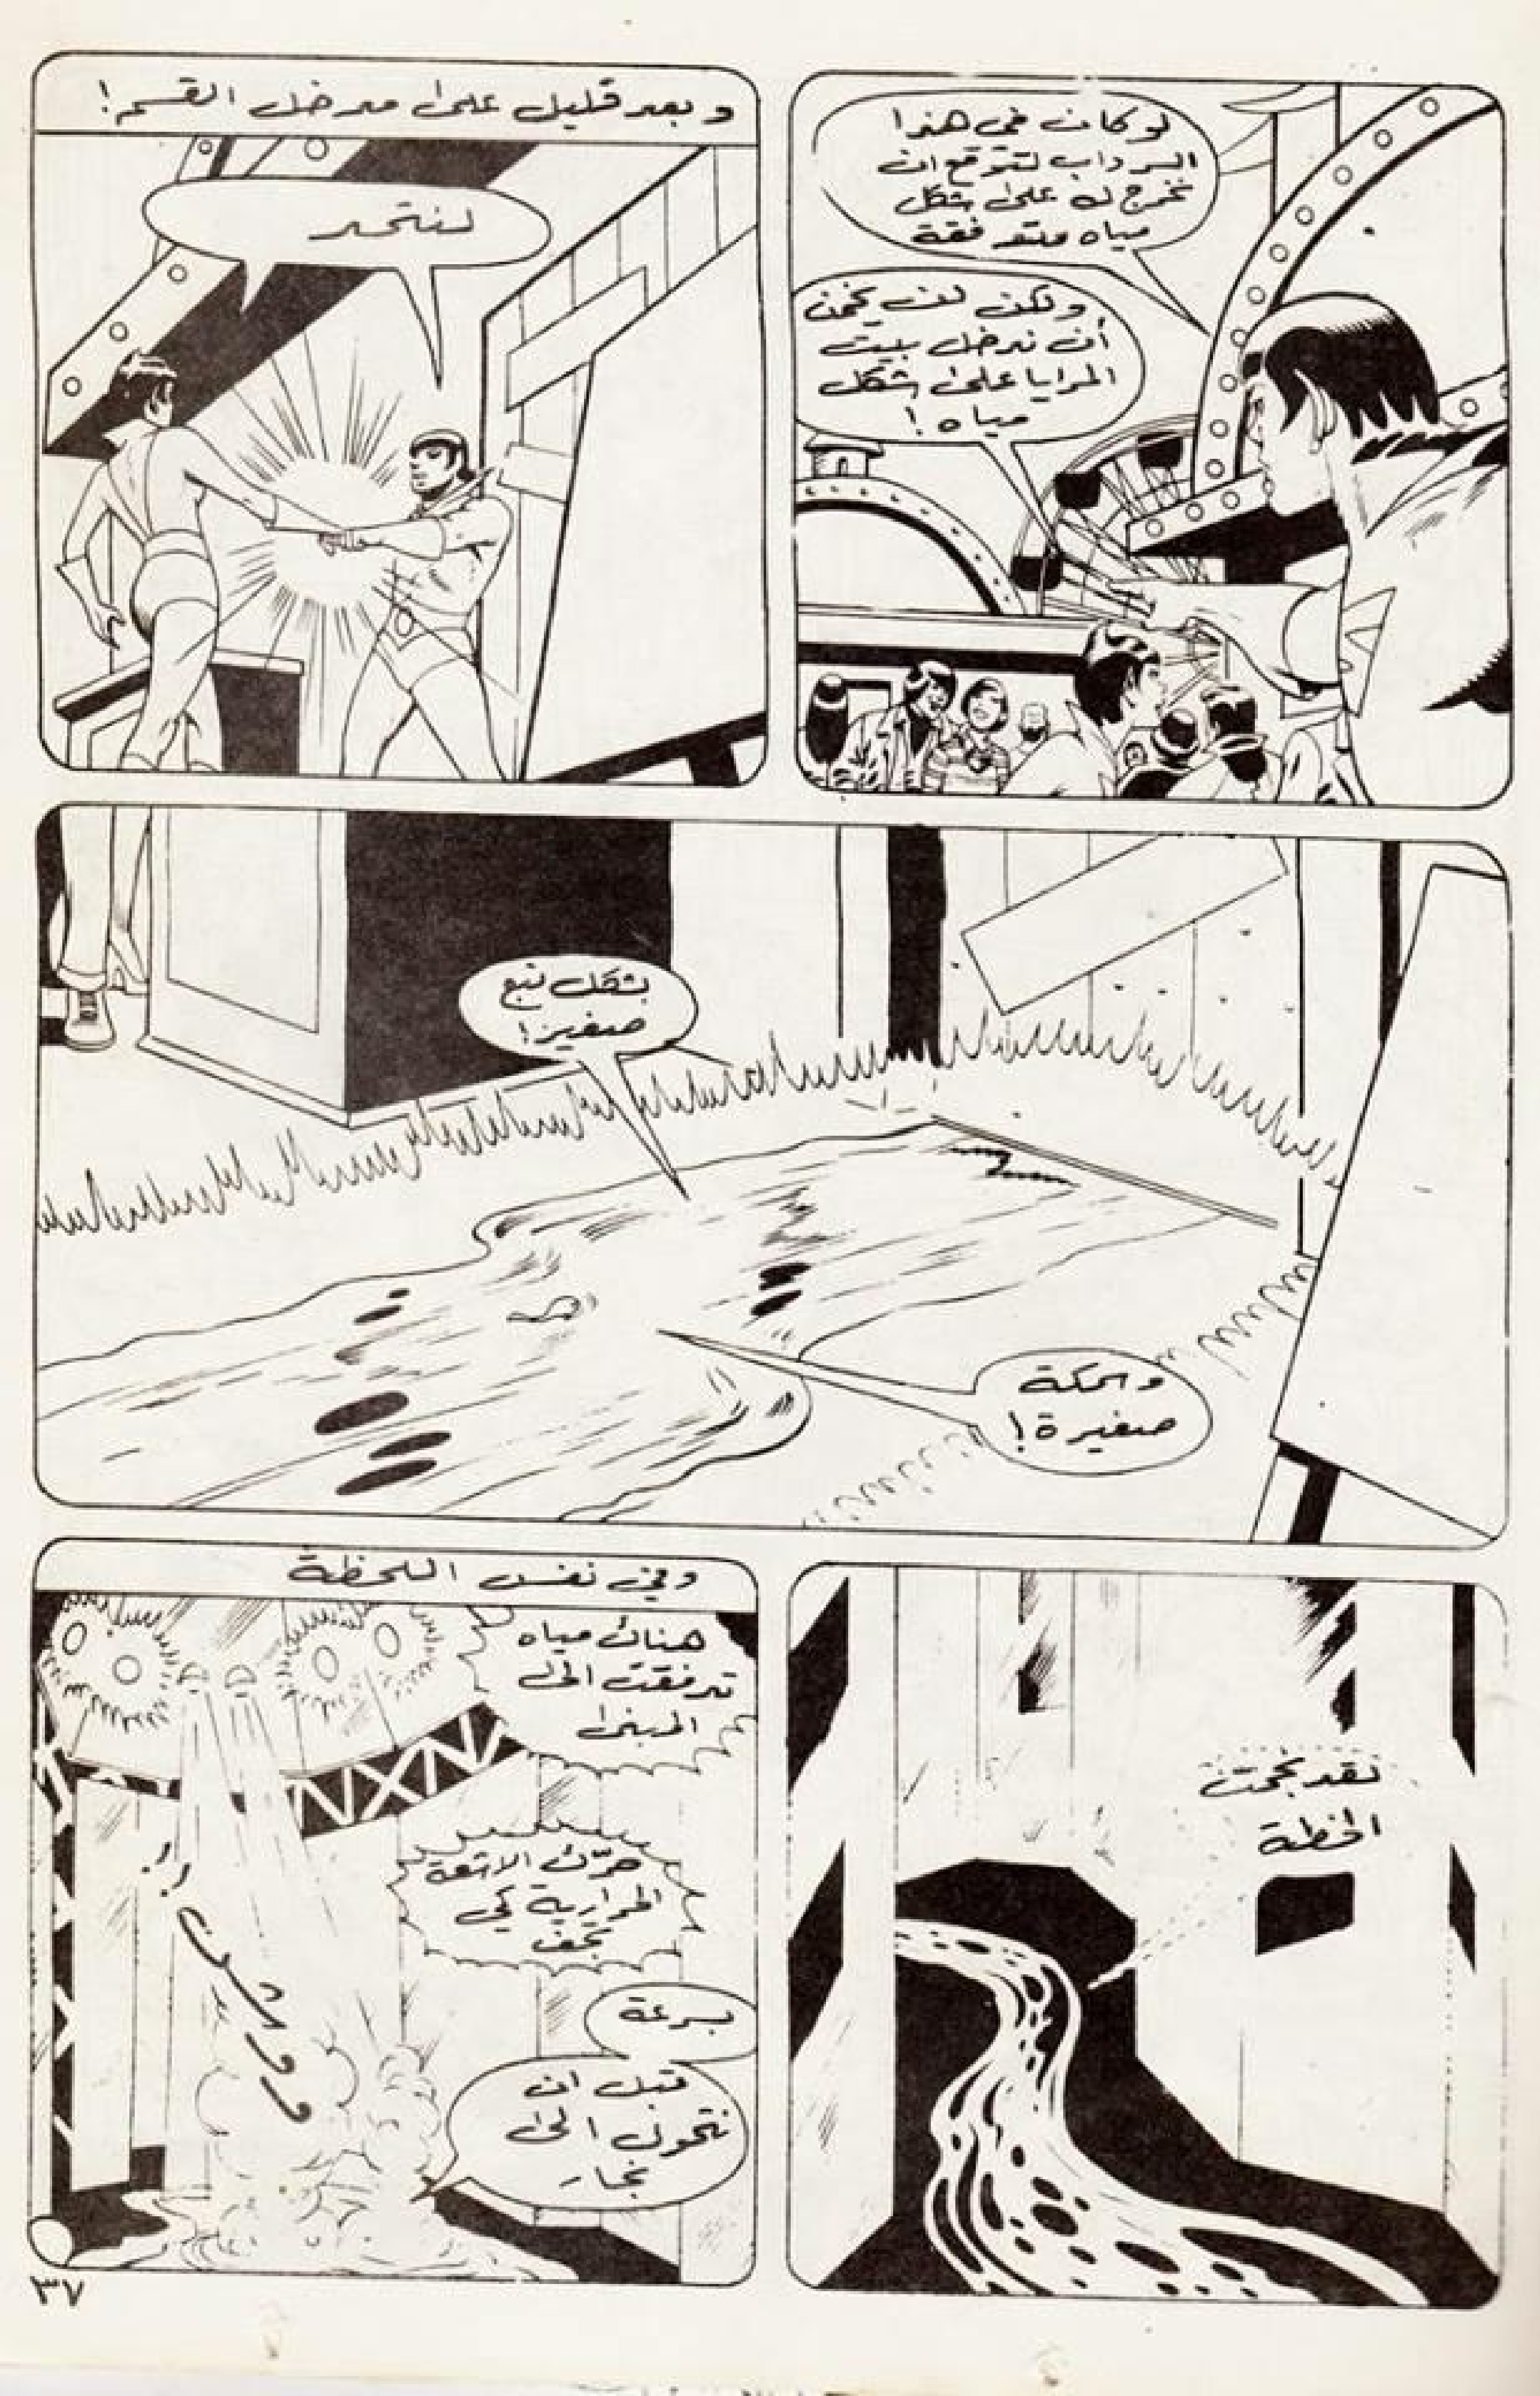 لو كان في هذا
السرداب لتوقع ان
نخرج له على شكل
مياه متدفقة
ولكن لن يخمن
أن ندخل بيت
المرايا على شكل
مياه !
وبعد قليل على مدخل القسم !
لنتحد
بشكل نبع
صغير !
وسمكة
صغيرة !
لقد نجحت
الخطة
وفي نفس اللحظة
هناك مياه
تدفقت الى
المبنى
حرّك الاشعة
الحرارية كي
تجف
بسرعة
قبل ان
نتحول الى
بخار
ووووششش !!
٣٧